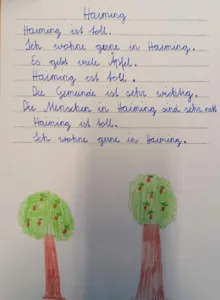 Haiming
Haiming ist toll.
Ich wohne gerne in Haiming.
Es gibt viele Äpfel.
Haiming ist toll.
Die Gemeinde ist sehr wichtig.
Die Menschen in Haiming sind sehr nett.
Haiming ist toll.
Ich wohne gerne in Haiming.